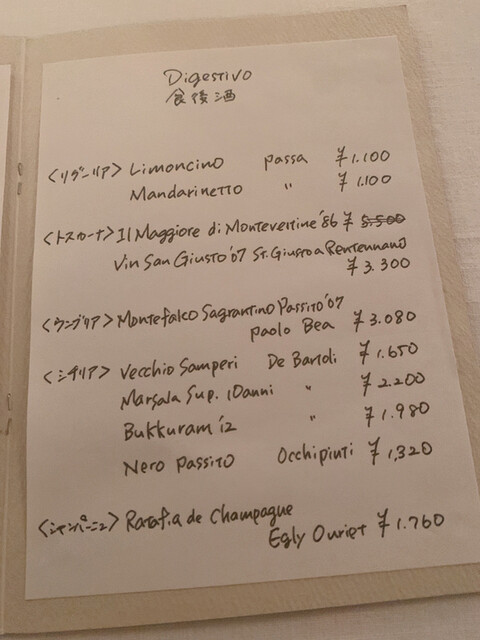 Digestivo
食後酒
<リグーリア> Limoncino passa ¥1.100
Mandarinetto " ¥1.100
<トスカーナ> Il Maggiore di Montevertine '86 ¥5.500
Vin San Giusto '07 St. Giusto a Rentennano
¥3.300
<ウンブリア> Montefalco Sagrantino Passito '07
Paolo Bea ¥3.080
<シチリア> Vecchio Samperi De Bartoli ¥1.650
Marsala Sup. 10anni " ¥2.200
Bukkuram '12 " ¥1.980
Nero Passito Occhipinti ¥1,320
<シャンパーニュ> Ratafia de Champagne
Egly Ouriet ¥1.760